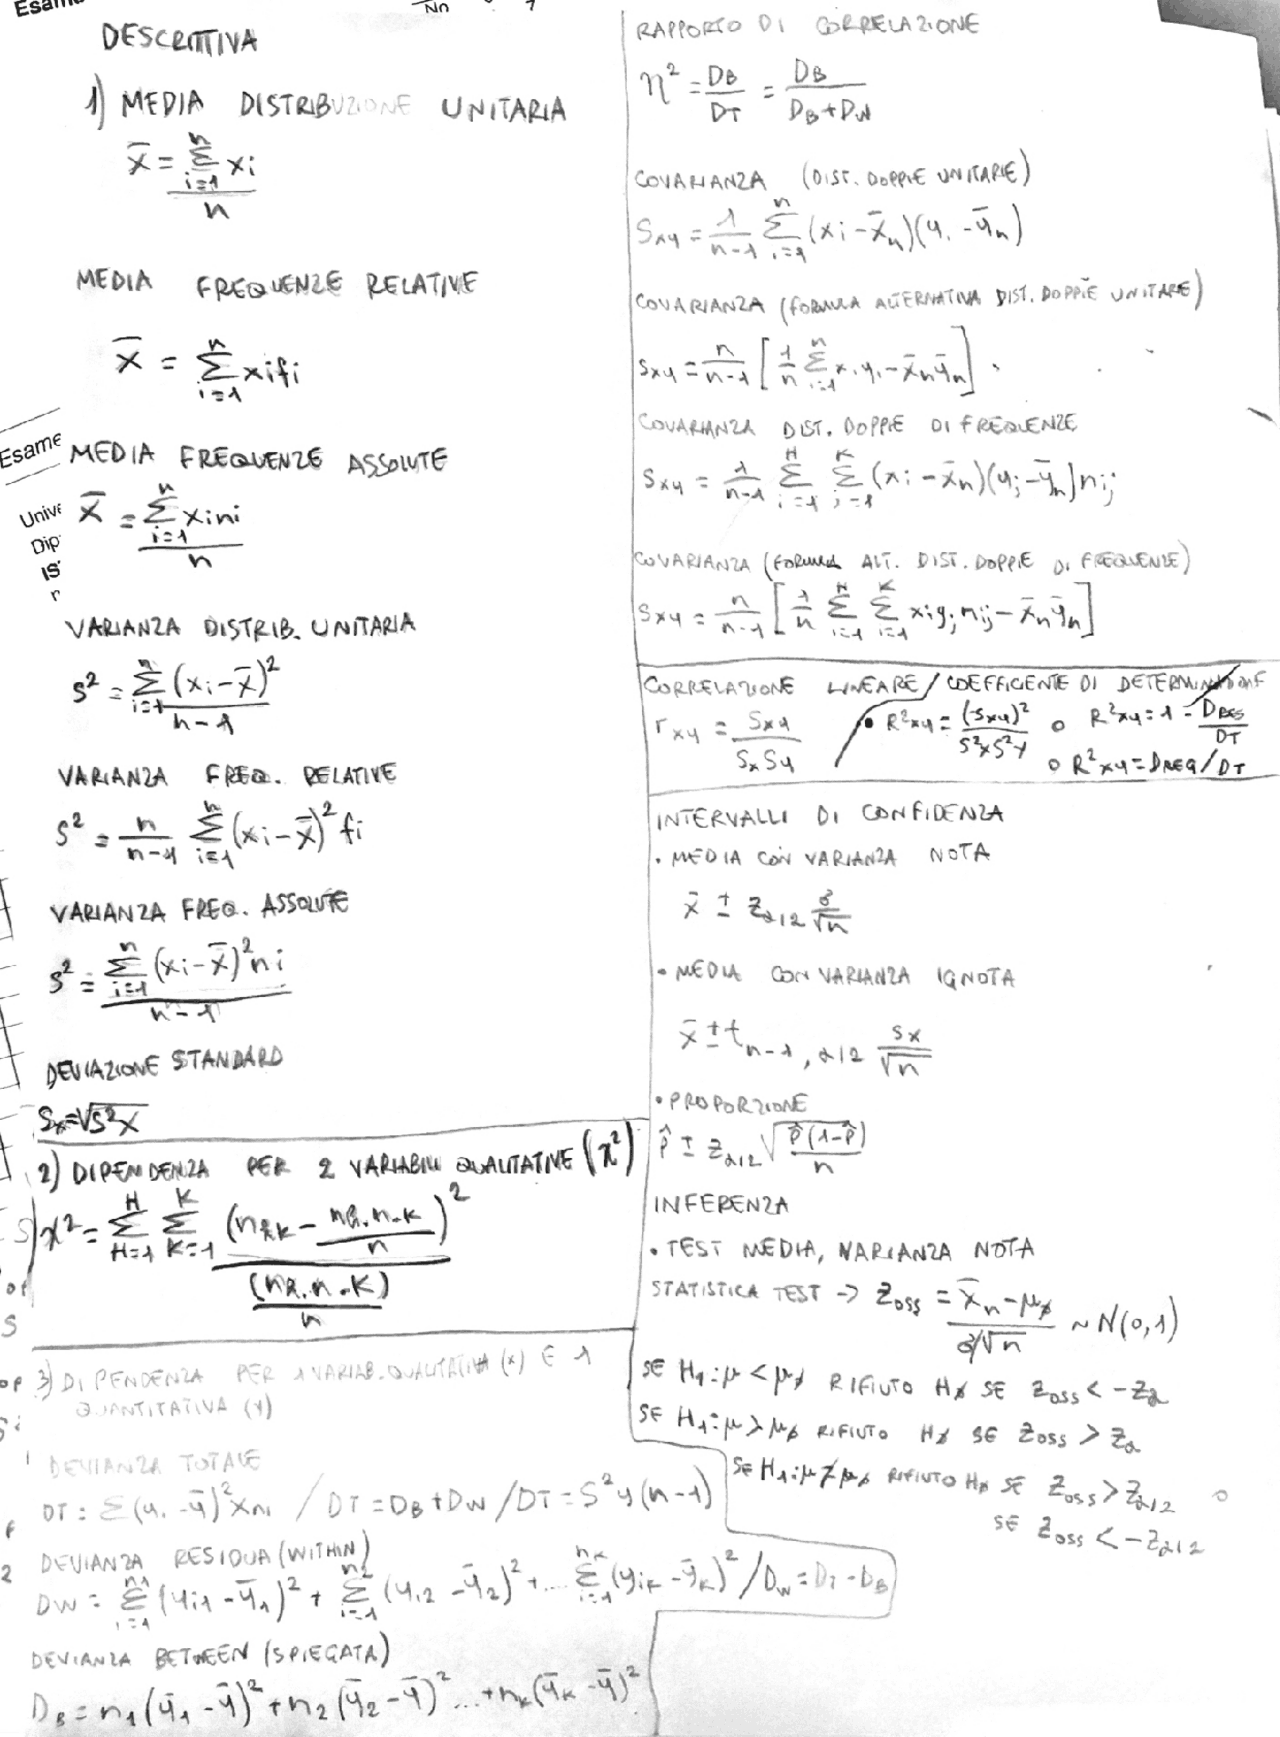 Esame
No
DESCRITTIVA
1) MEDIA DISTRIBUZIONE UNITARIA
x̄ = Σ_{i=1}^{n} xi / n
MEDIA FREQUENZE RELATIVE
x̄ = Σ_{i=1}^{n} xifi
Esame
MEDIA FREQUENZE ASSOLUTE
x̄ = Σ_{i=1}^{n} xini / n
Dip
VARIANZA DISTRIB. UNITARIA
s² = Σ_{i=1}^{n} (xi-x̄)² / n-1
VARIANZA FREQ. RELATIVE
s² = n/n-1 Σ_{i=1}^{n} (xi-x̄)² fi
VARIANZA FREQ. ASSOLUTE
s² = Σ_{i=1}^{n} (xi-x̄)² ni / n-1
DEVIAZIONE STANDARD
Sx=√S²x
2) DIPENDENZA PER 2 VARIABILI QUALITATIVE (χ²)
χ² = Σ_{H=1}^{H} Σ_{K=1}^{K} (nhk - nh.n.k/n)² / (nh.n.k)/n
3) DIPENDENZA PER 1 VARIAB. QUALITATIVA (x) E 1
QUANTITATIVA (Y)
DEVIANZA TOTALE
DT = Σ(yi-ȳ)² x ni / DT = DB + DW / DT = S²y(n-1)
DEVIANZA RESIDUA (WITHIN)
DW = Σ_{i=1}^{n1} (yi1-ȳ1)² + Σ_{i=1}^{n2} (yi2-ȳ2)² + .... Σ_{i=1}^{nk} (yik-ȳk)² / Dw = DT - DB
DEVIANZA BETWEEN (SPIEGATA)
DB = n1(ȳ1-ȳ)² + n2(ȳ2-ȳ)² ... + nk(ȳk-ȳ)²
RAPPORTO DI CORRELAZIONE
η² = DB/DT = DB/DB+DW
COVARIANZA (DIST. DOPPIE UNITARIE)
Sxy = 1/n-1 Σ_{i=1}^{n} (xi-x̄n)(yi-ȳn)
COVARIANZA (FORMULA ALTERNATIVA DIST. DOPPIE UNITARE)
Sxy = n/n-1 [1/n Σ_{i=1}^{n} xiyi - x̄nȳn]
COVARIANZA DIST. DOPPIE DI FREQUENZE
Sxy = 1/n-1 Σ_{i=1}^{H} Σ_{j=1}^{K} (xi-x̄n)(yj-ȳn)nij
COVARIANZA (FORMULA ALT. DIST. DOPPIE DI FREQUENZE)
Sxy = n/n-1 [1/n Σ_{i=1}^{H} Σ_{i=1}^{K} xiyjnij - x̄nȳn]
CORRELAZIONE LINEARE / COEFFICENTE DI DETERMINAZIONE
rxy = Sxy/SxSy
• R²xy = (Sxy)²/S²xS²y ○ R²xy = 1 - DRES/DT
○ R²xy = DREG/DT
INTERVALLI DI CONFIDENZA
• MEDIA CON VARIANZA NOTA
x̄ ± zα/2 σ/√n
• MEDIA CON VARIANZA IGNOTA
x̄ ± t n-1, α/2 Sx/√n
• PROPORZIONE
p̂ ± zα/2 √p̂(1-p̂)/n
INFERENZA
• TEST MEDIA, VARIANZA NOTA
STATISTICA TEST -> Zoss = x̄n-μ0 / σ/√n ~ N(0,1)
SE H1: μ < μ0 RIFIUTO H0 SE Zoss < -Zα
SE H1: μ > μ0 RIFIUTO H0 SE Zoss > Zα
SE H1: μ ≠ μ0 RIFIUTO H0 SE Zoss > Zα/2
SE Zoss < -Zα/2